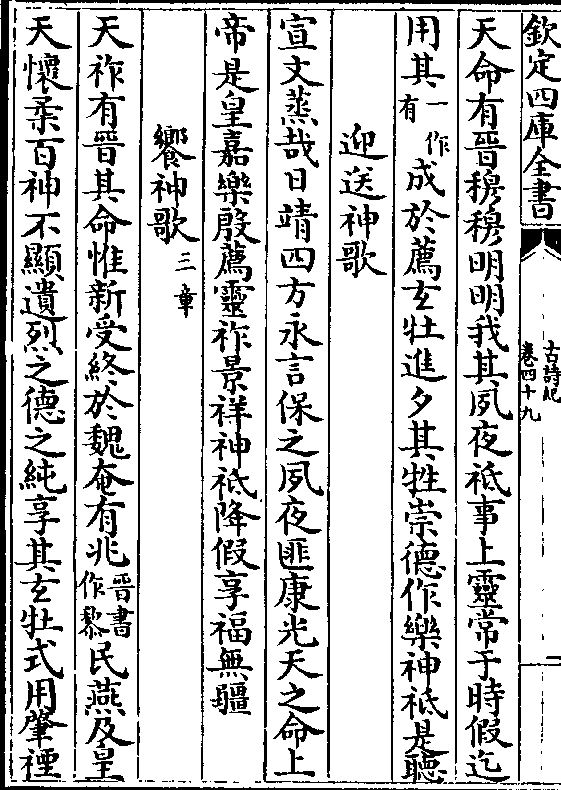 欽定四庫全書
古詩紀
卷四十九
天命有晉穆穆明明我其夙夜祗事上靈常于時假迄
用其一作有成於薦玄牡進夕其牲崇德作樂神祗是聽
迎送神歌
宣文蒸哉日靖四方永言保之夙夜匪康光天之命上
帝是皇嘉樂殷薦靈祚景祥神祗降假享福無疆
饗神歌三章
天祚有晉其命惟新受終於魏奄有兆晉書作黎民燕及皇
天懷柔百神不顯遺烈之德之純享其玄牡式用肇禋